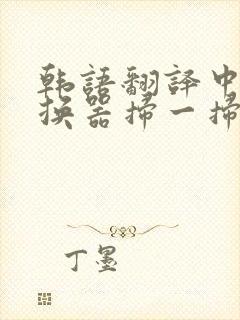 韩語翻譯中
换器掃一掃
丁墨